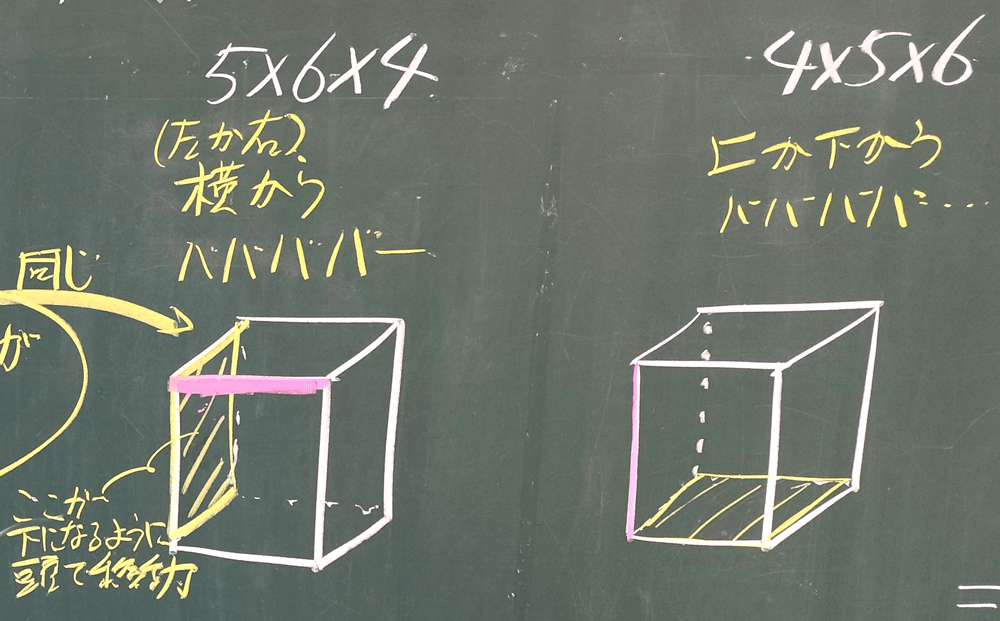 5×6×4
(左か右)
横から
バババババー
同じ
が
ここが
下になるように
頭で移動
4×5×6
上か下から
ババババ…
=